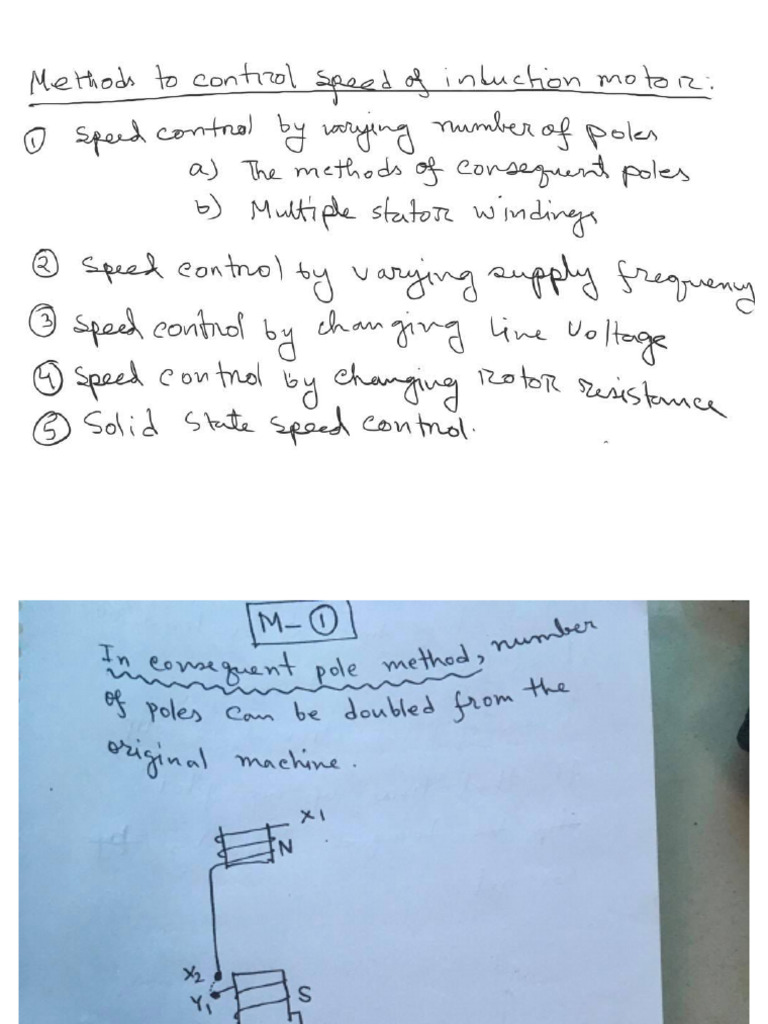 Methods to control speed of induction motor:
① Speed control by varying number of poles
a) The methods of consequent poles
b) Multiple stator windings
② Speed control by varying supply frequency
③ Speed control by changing line voltage
④ Speed control by changing rotor resistance
⑤ Solid state speed control.
M-①
In consequent pole method, number
of poles can be doubled from the
original machine.
X1
N
X2
Y1
S